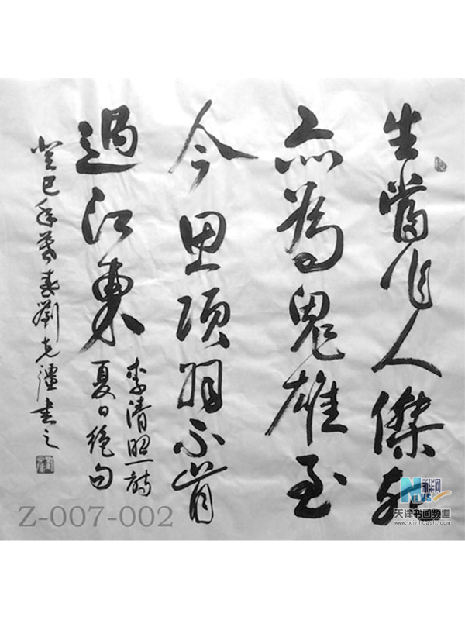 生當作人傑死
亦為鬼雄至
今思項羽不肯
過江東
李清照詩
夏日絕句
癸巳年暮春劉克
書之
Z-007-002
天津书画频道